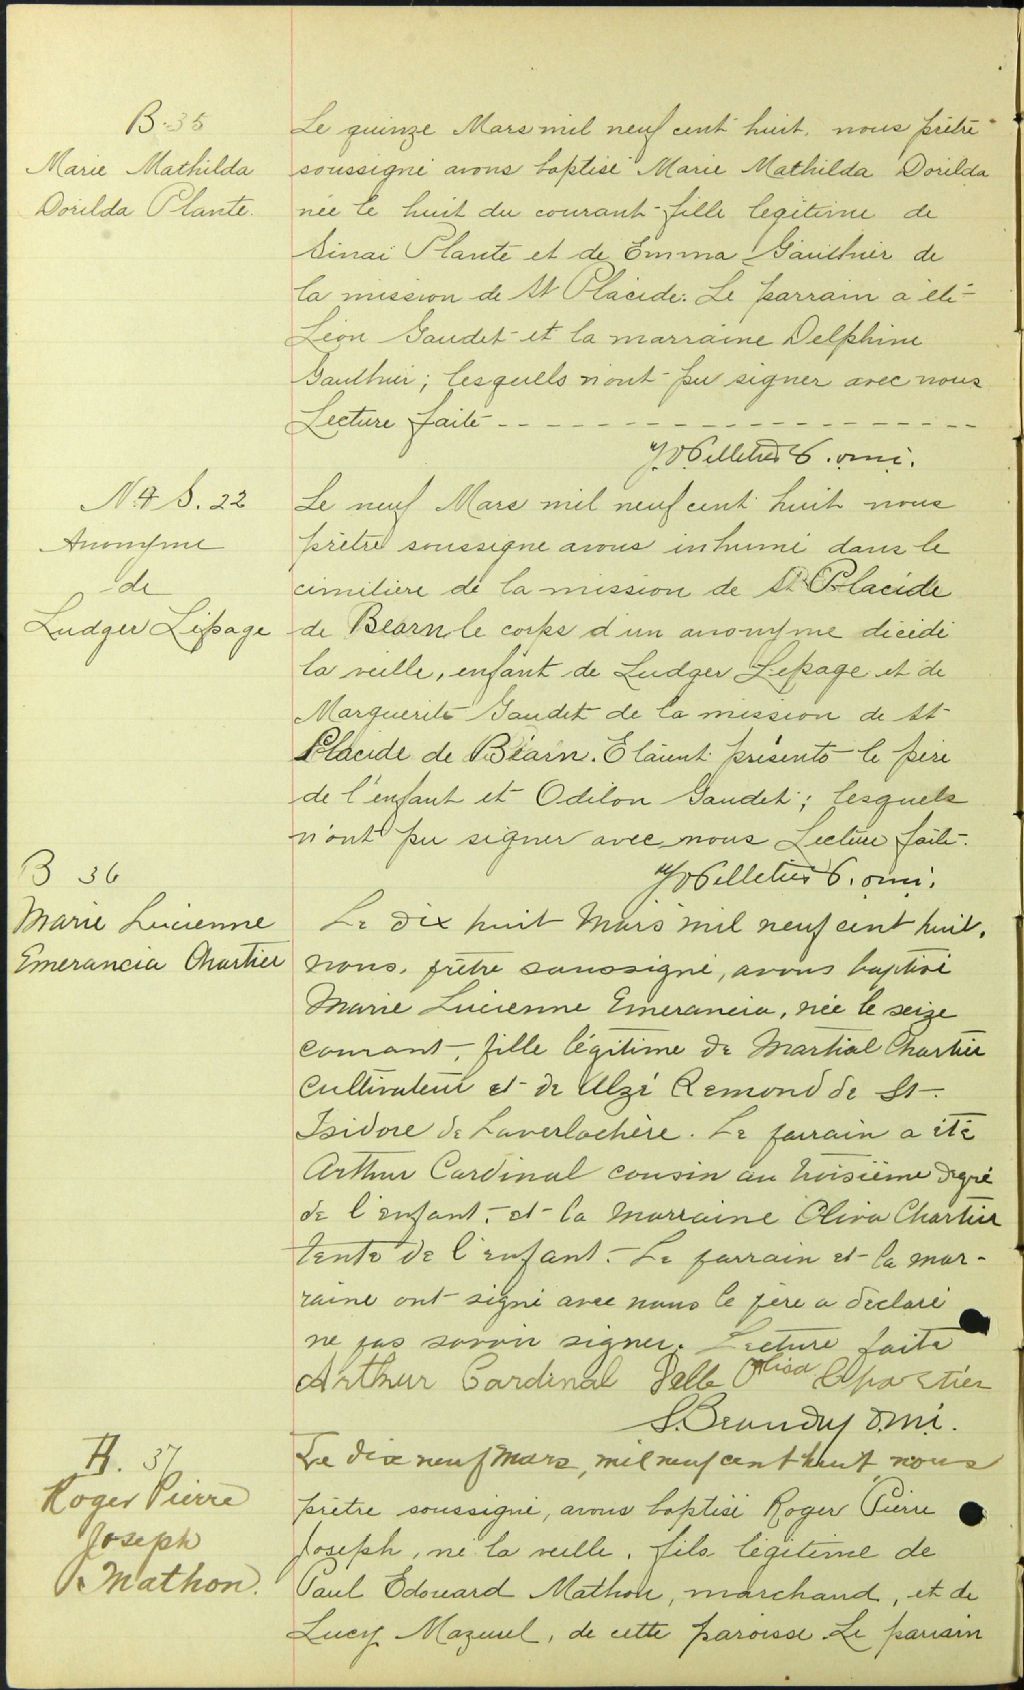 B. 35
Marie Mathilda
Dorilda Plante.
Le quinze Mars mil neuf cent huit, nous prêtre
soussigné avons baptisé Marie Mathilda Dorilda
née le huit du courant fille légitime de
Sinaï Plante et de Emma Gauthier de
la mission de St Placide. Le parrain a été
Léon Gaudet et la marraine Delphine
Gauthier; lesquels n'ont pu signer avec nous
Lecture faite
Pelletier P. o.m.i.
N. 4 S. 22
Anonyme
de
Ludger Lepage
Le neuf Mars mil neuf cent huit nous
prêtre soussigné avons inhumé dans le
cimitière de la mission de St Placide
de Béarn le corps d'un anonyme décédé
la veille, enfant de Ludger Lepage et de
Marguerite Gaudet de la mission de St
Placide de Béarn. Etaient présents le père
de l'enfant et Odilon Gaudet; lesquels
n'ont pu signer avec nous Lecture faite.
Pelletier P. o.m.i.
B 36
Marie Lucienne
Emerancia Chartier
Le dix huit Mars mil neuf cent huit,
nous, prêtre soussigné, avons baptisé
Marie Lucienne Emerancia, née le seize
courant, fille légitime de Martial Chartier
cultivateur et de Alzé Remond de St-
Isidore de Laverlochère. Le parrain a été
Arthur Cardinal cousin au troisième degré
de l'enfant, et la marraine Oliva Chartier
tente de l'enfant. Le parrain et la mar-
raine ont signé avec nous le père a déclaré
ne pas savoir signer. Lecture faite
Arthur Cardinal Delle Chartier
S. Beaudry o.m.i.
B. 37
Roger Pierre
Joseph
Mathon.
Le dix neuf Mars, mil neuf cent huit nous
prêtre soussigné, avons baptisé Roger Pierre
Joseph, né la veille, fils légitime de
Paul Edouard Mathon, marchand, et de
Lucy Mazurel, de cette paroisse. Le parrain